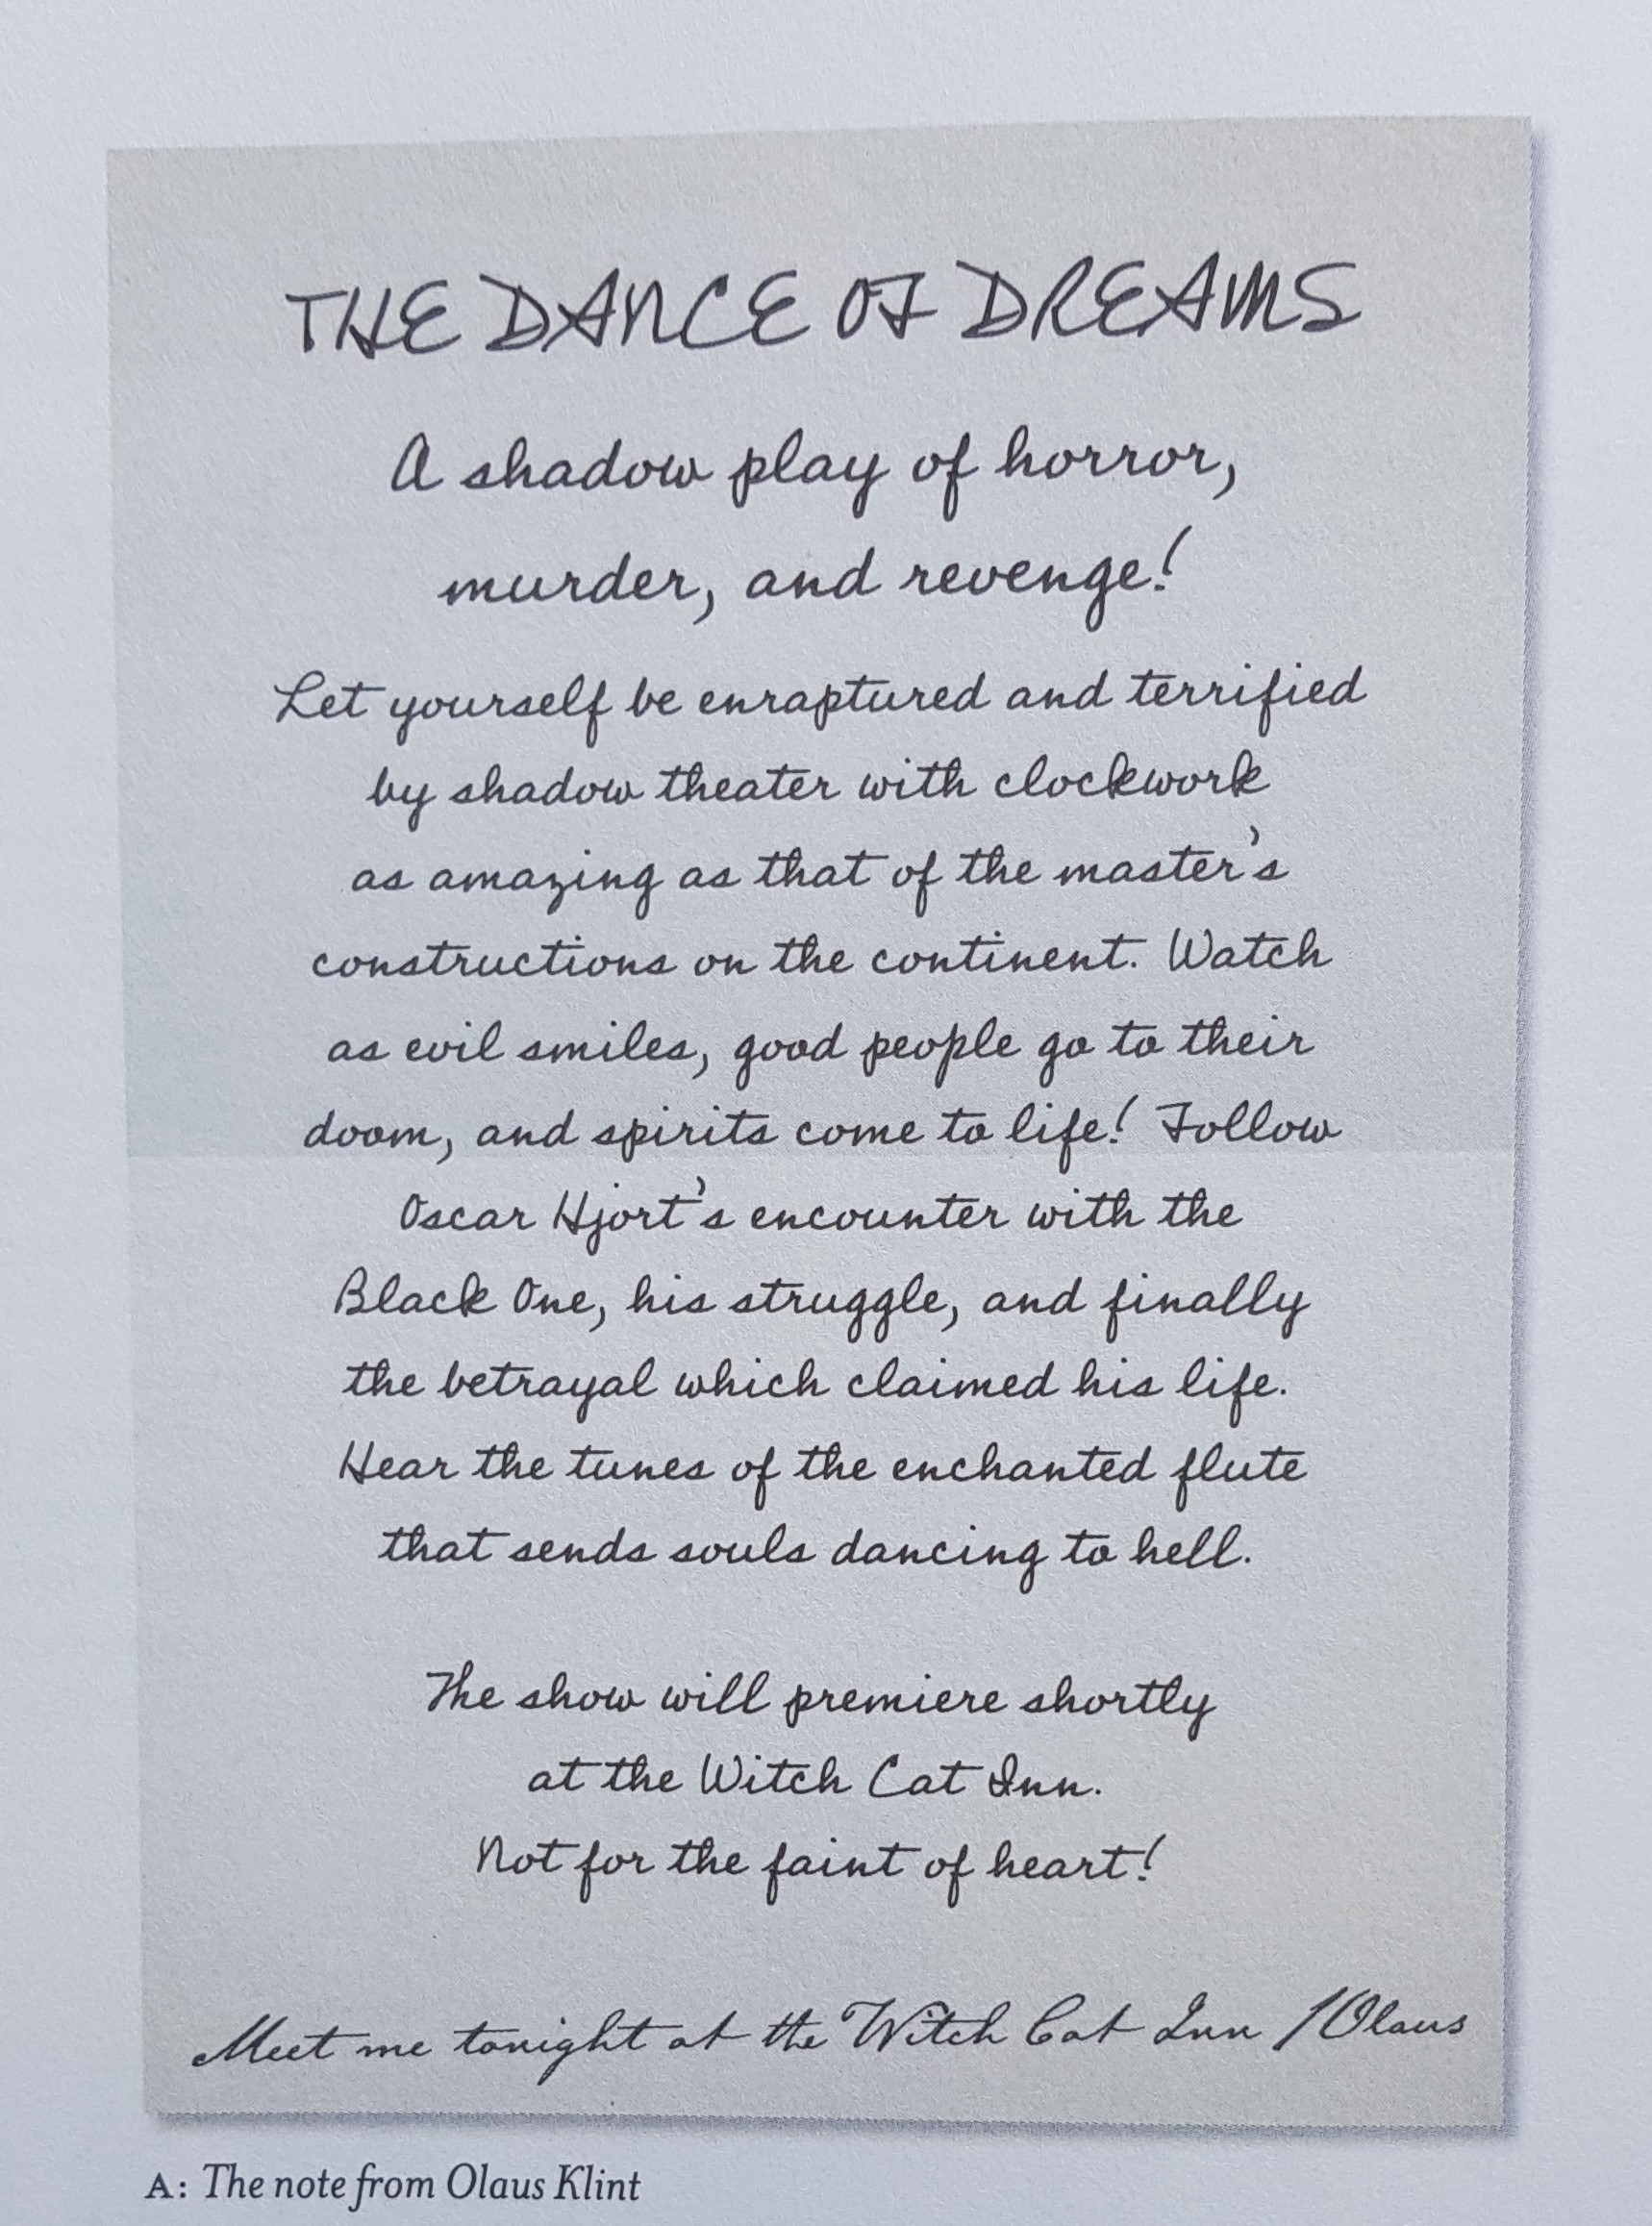 THE DANCE OF DREAMS
A shadow play of horror,
murder, and revenge!
Let yourself be enraptured and terrified
by shadow theater with clockwork
as amazing as that of the master's
constructions on the continent. Watch
as evil smiles, good people go to their
doom, and spirits come to life! Follow
Oscar Hjort's encounter with the
Black One, his struggle, and finally
the betrayal which claimed his life.
Hear the tunes of the enchanted flute
that sends souls dancing to hell.
The show will premiere shortly
at the Witch Cat Inn.
Not for the faint of heart!
Meet me tonight at the Witch Cat Inn /Olaus
A: The note from Olaus Klint